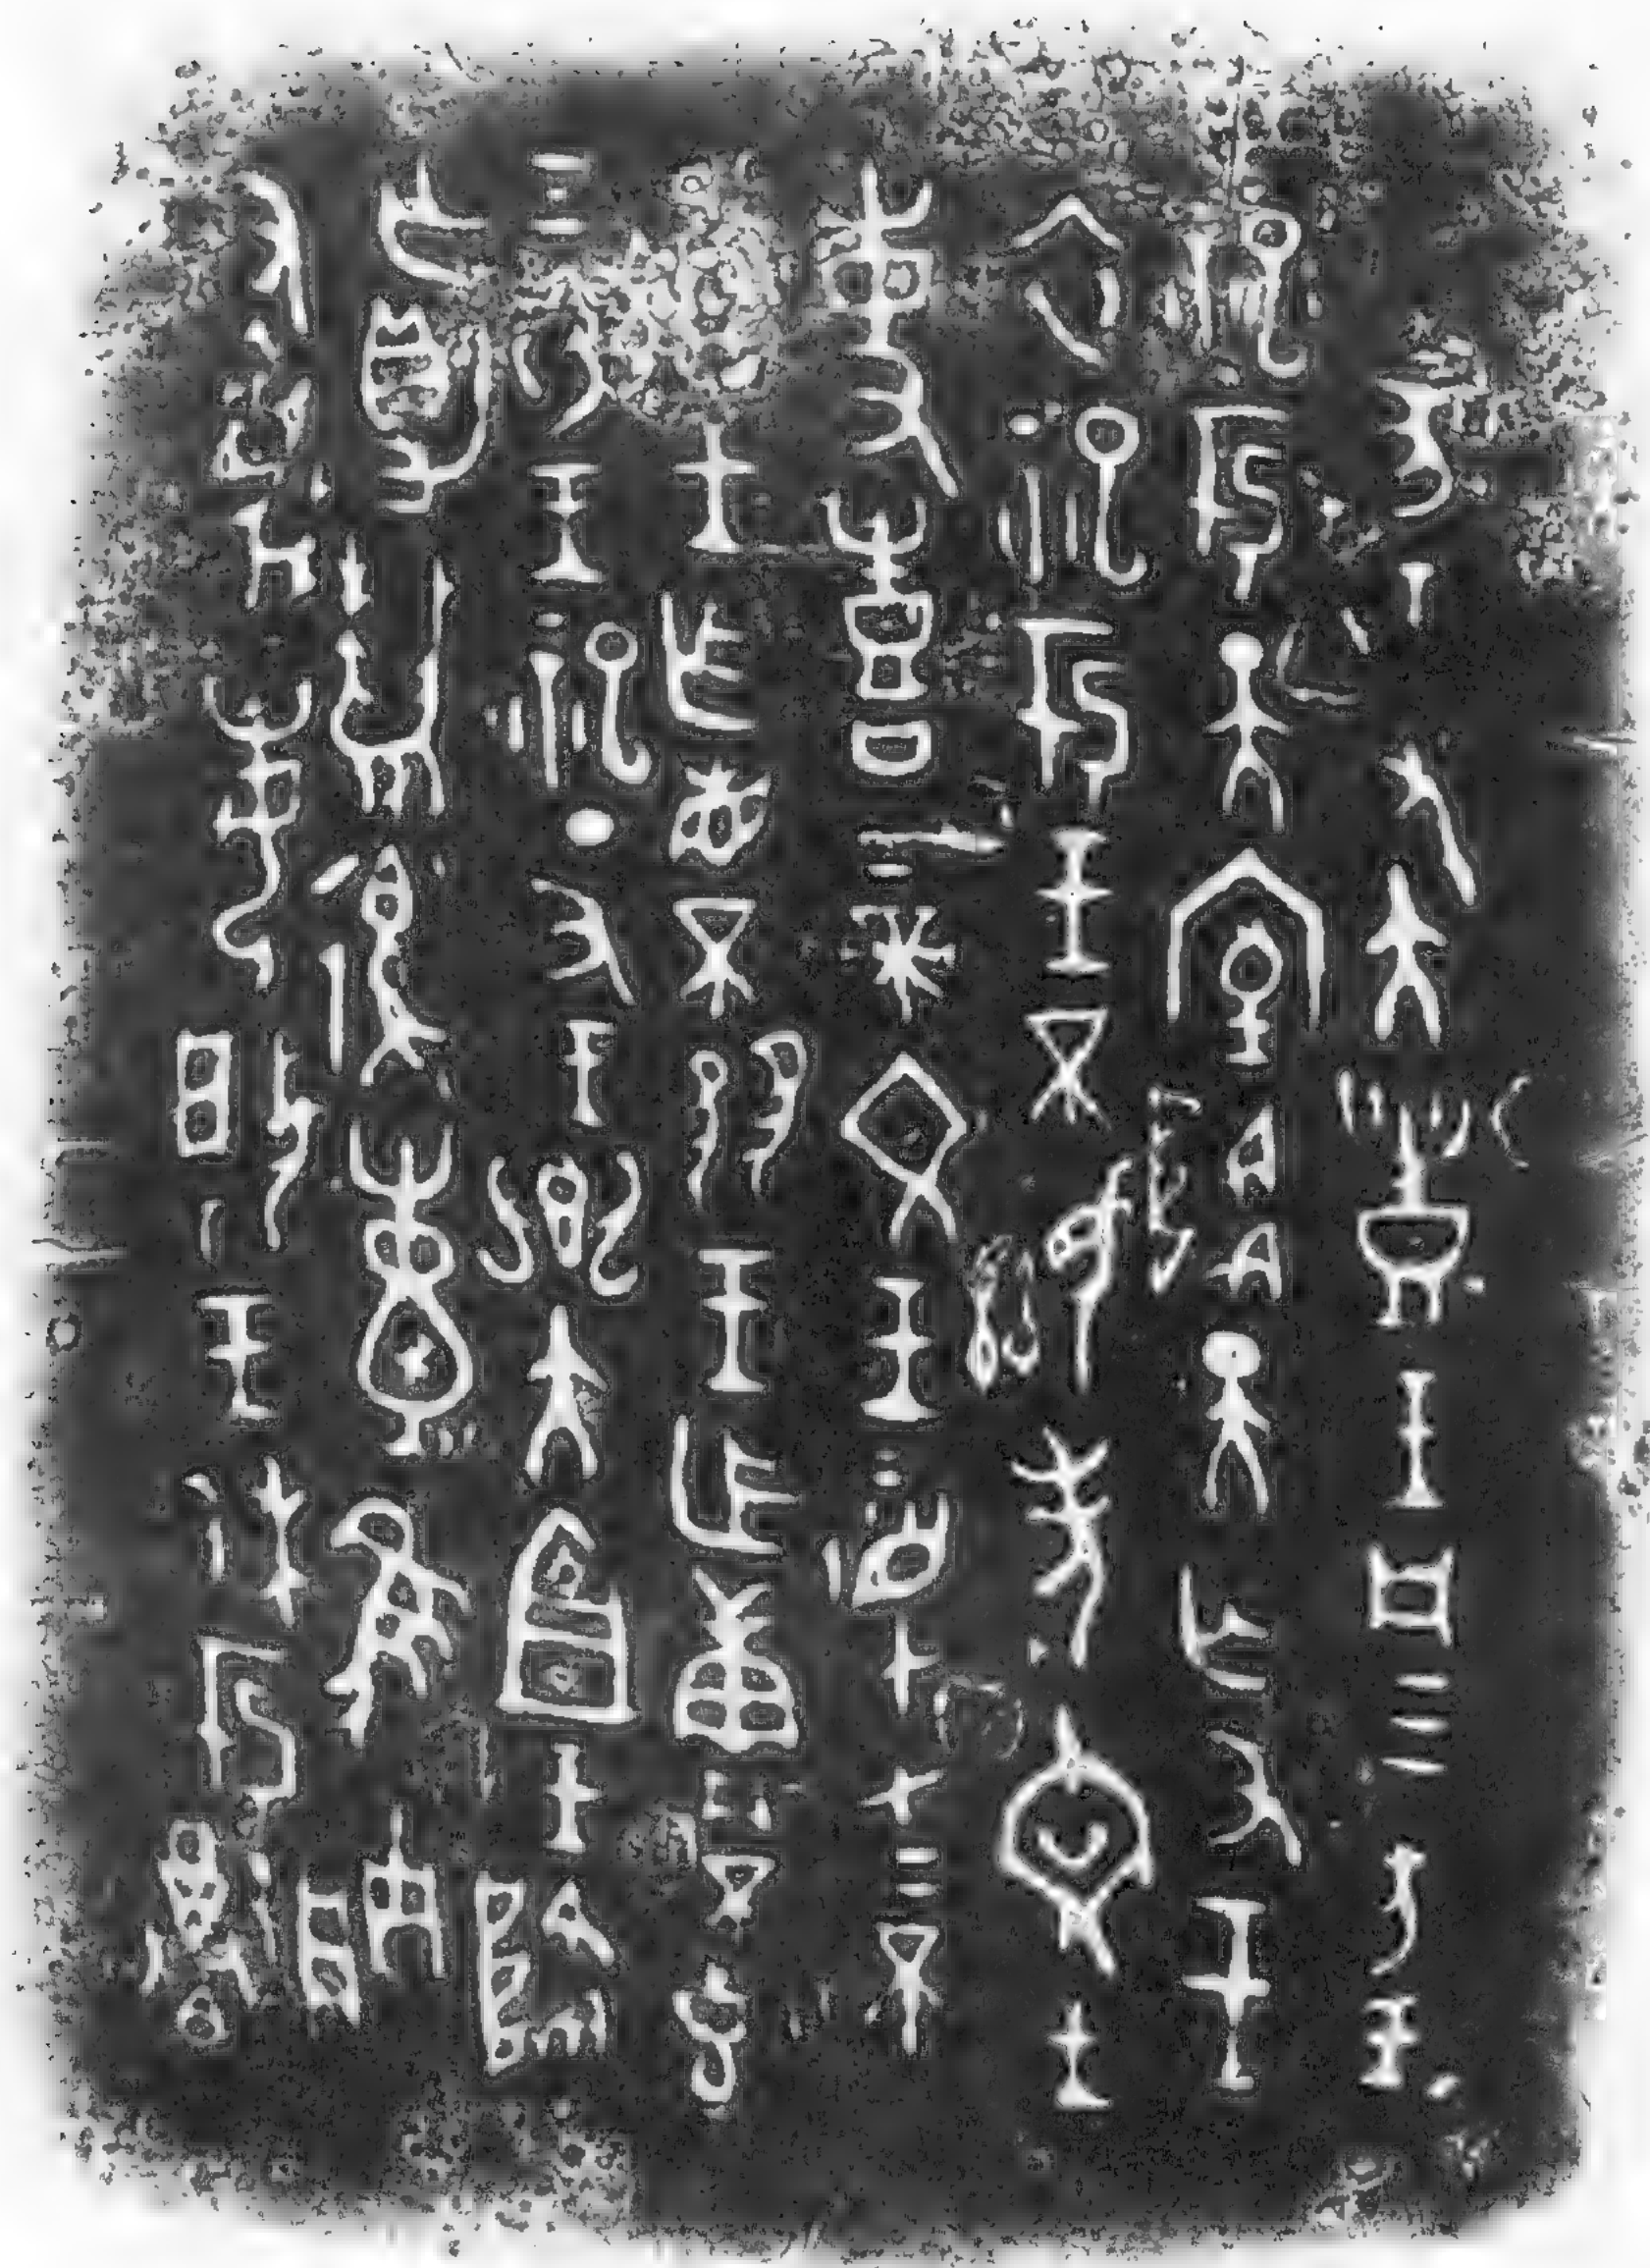 亥王又大豐王凡三方王
祀于天室降天亡又王
衣祀于王不顯考文王
事喜上帝文王才上不
顯王乍省不王乍不克
衣王祀丁丑王鄉大宜王降
亡爵隹朕
又每王休于尊